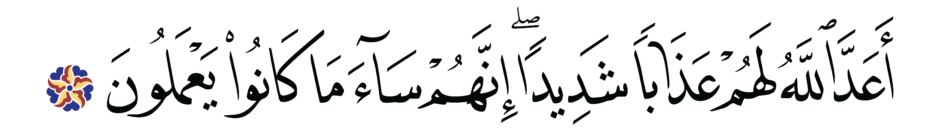 أَعَدَّ ٱللَّهُ لَهُمْ عَذَابًا شَدِيدًاۖ إِنَّهُمْ سَآءَ مَا كَانُوا۟ يَعْمَلُونَ